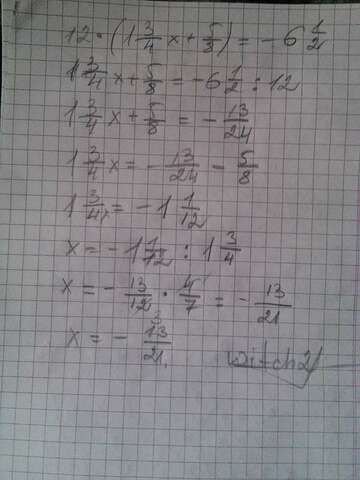 12·(1 3/4 x + 5/8) = -6 1/2
1 3/4 x + 5/8 = -6 1/2 : 12
1 3/4 x + 5/8 = - 13/24
1 3/4 x = - 13/24 - 5/8
1 3/4 x = -1 1/12
x = -1 1/12 : 1 3/4
x = - 13/12 · 4/7 = - 13/21
x = - 13/21